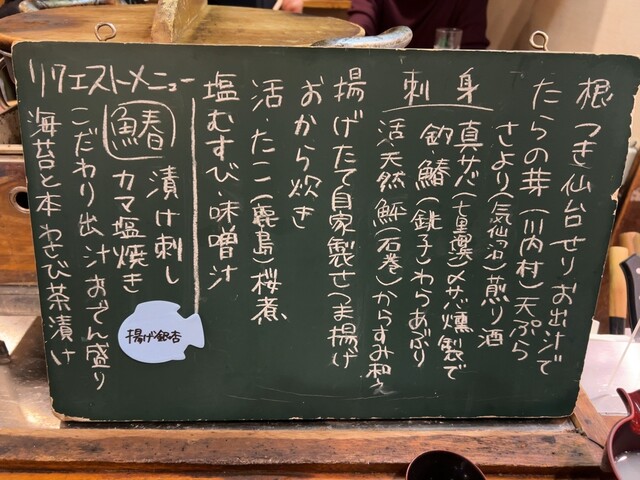 根つき仙台せりお出汁で
たらの芽(川内村)天ぷら
刺身
さより(気仙沼)煎り酒
真サバ(七里濱)〆サバ燻製で
釣鰆(銚子)わらあぶり
活〆天然鮃(石巻)からすみ和え
揚げたて自家製さつま揚げ
おから炊き
活・たこ(鹿島)桜煮
塩むすび・味噌汁
リクエストメニュー
鰆 漬け刺し
カマ塩焼き
こだわり出汁おでん盛り
海苔と本わさび茶漬け
揚げ銀杏